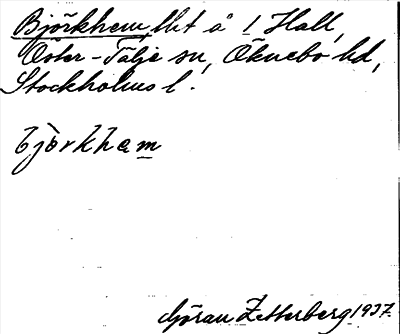 Björkhem, lht å 1 Hall,
Öster-Tälje sn, Öknebo hd,
Stockholms l.
bjòrkham
Göran Zetterberg 1937.